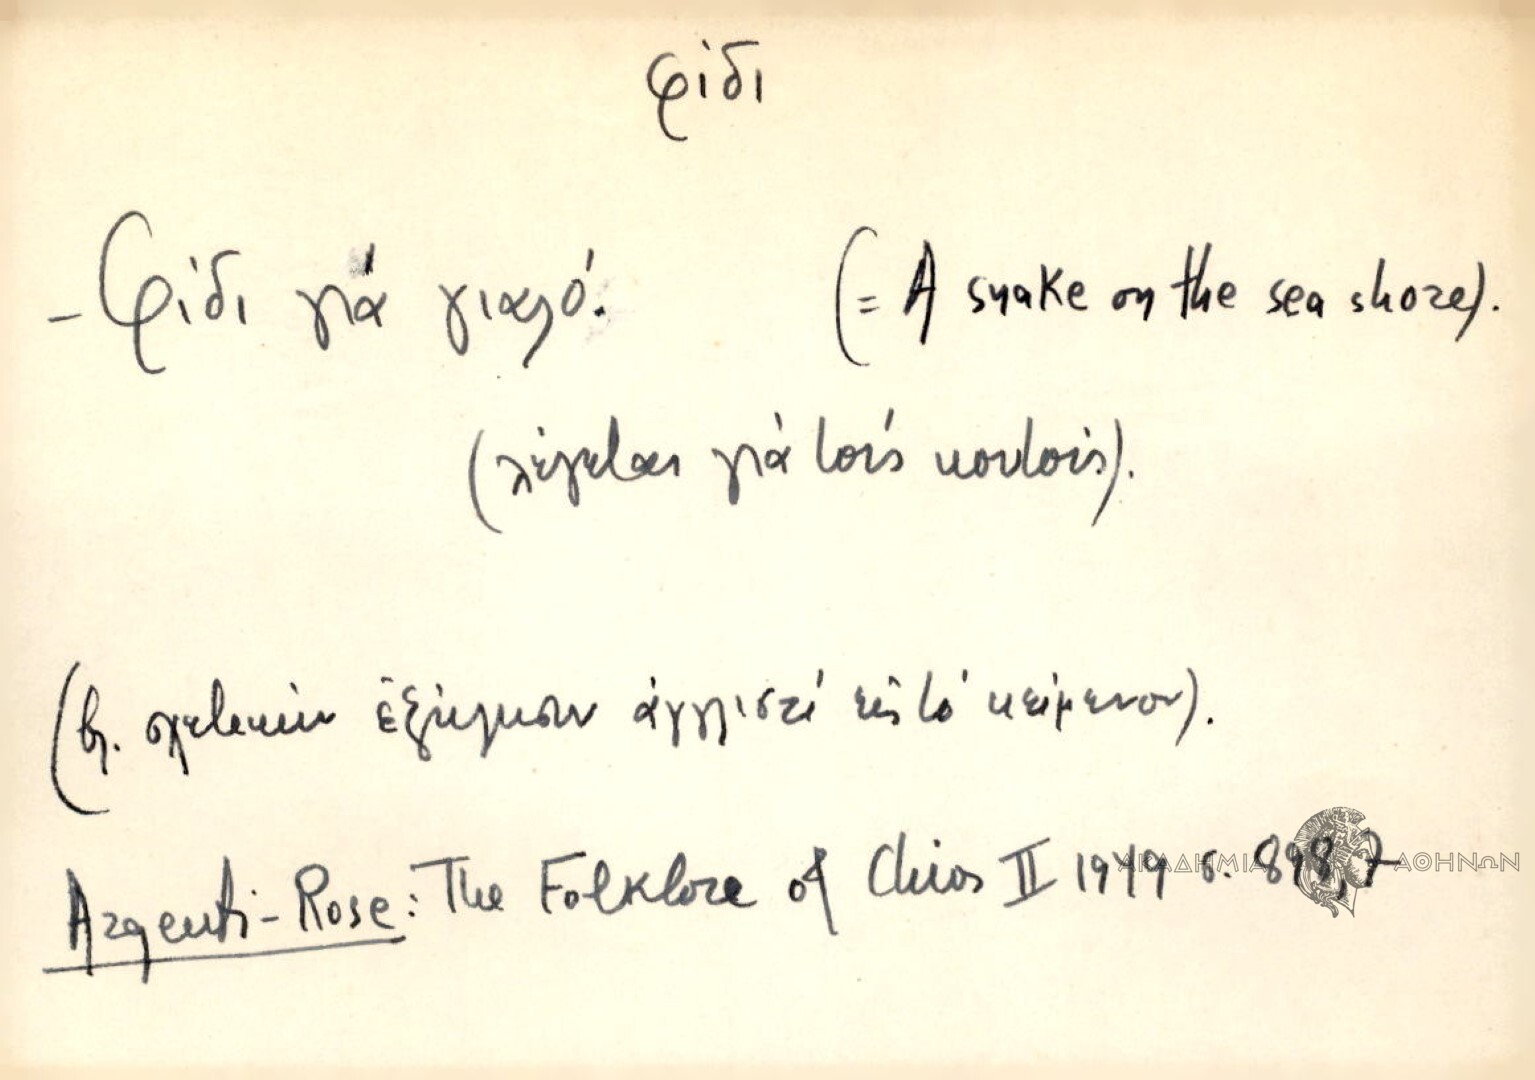 φίδι
- Φίδι γιά γιαλό. (= A snake on the sea shore).
(λέγεται γιά τούς κουτούς).
(βλ. σχετικήν ἐξήγησιν ἀγγλιστί εἰς τό κείμενον).
Argenti-Rose: The Folklore of Chios II 1949 σ. 898,7
ΑΚΑΔΗΜΙΑ ΑΘΗΝΩΝ